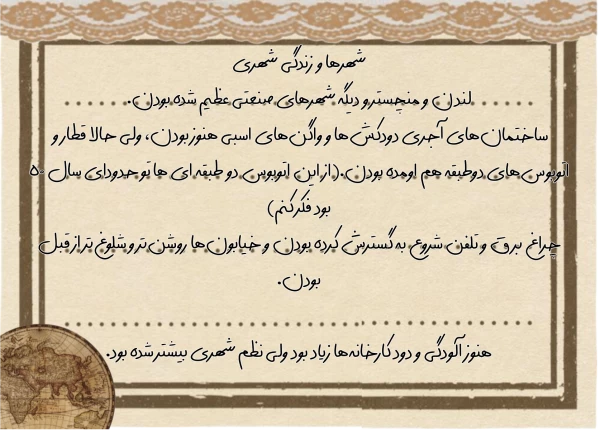 شهرها و زندگی شهری
لندن و منچستر و دیگه شهرهای صنعتی عظیم شده بودن.
ساختمان های آجری دودکش ها و واگن های اسبی هنوز بودن، ولی حالا قطار و
اتوبوس های دوطبقه هم اومده بودن. (از این اتوبوس دو طبقه ای ها تو حدودای سال ۵۰
بود فکر کنم)
چراغ برق و تلفن شروع به گسترش کرده بودن و خیابون ها روشن تر و شلوغ تر از قبل
بودن.
هنوز آلودگی و دود کارخانه ها زیاد بود ولی نظم شهری بیشتر شده بود.